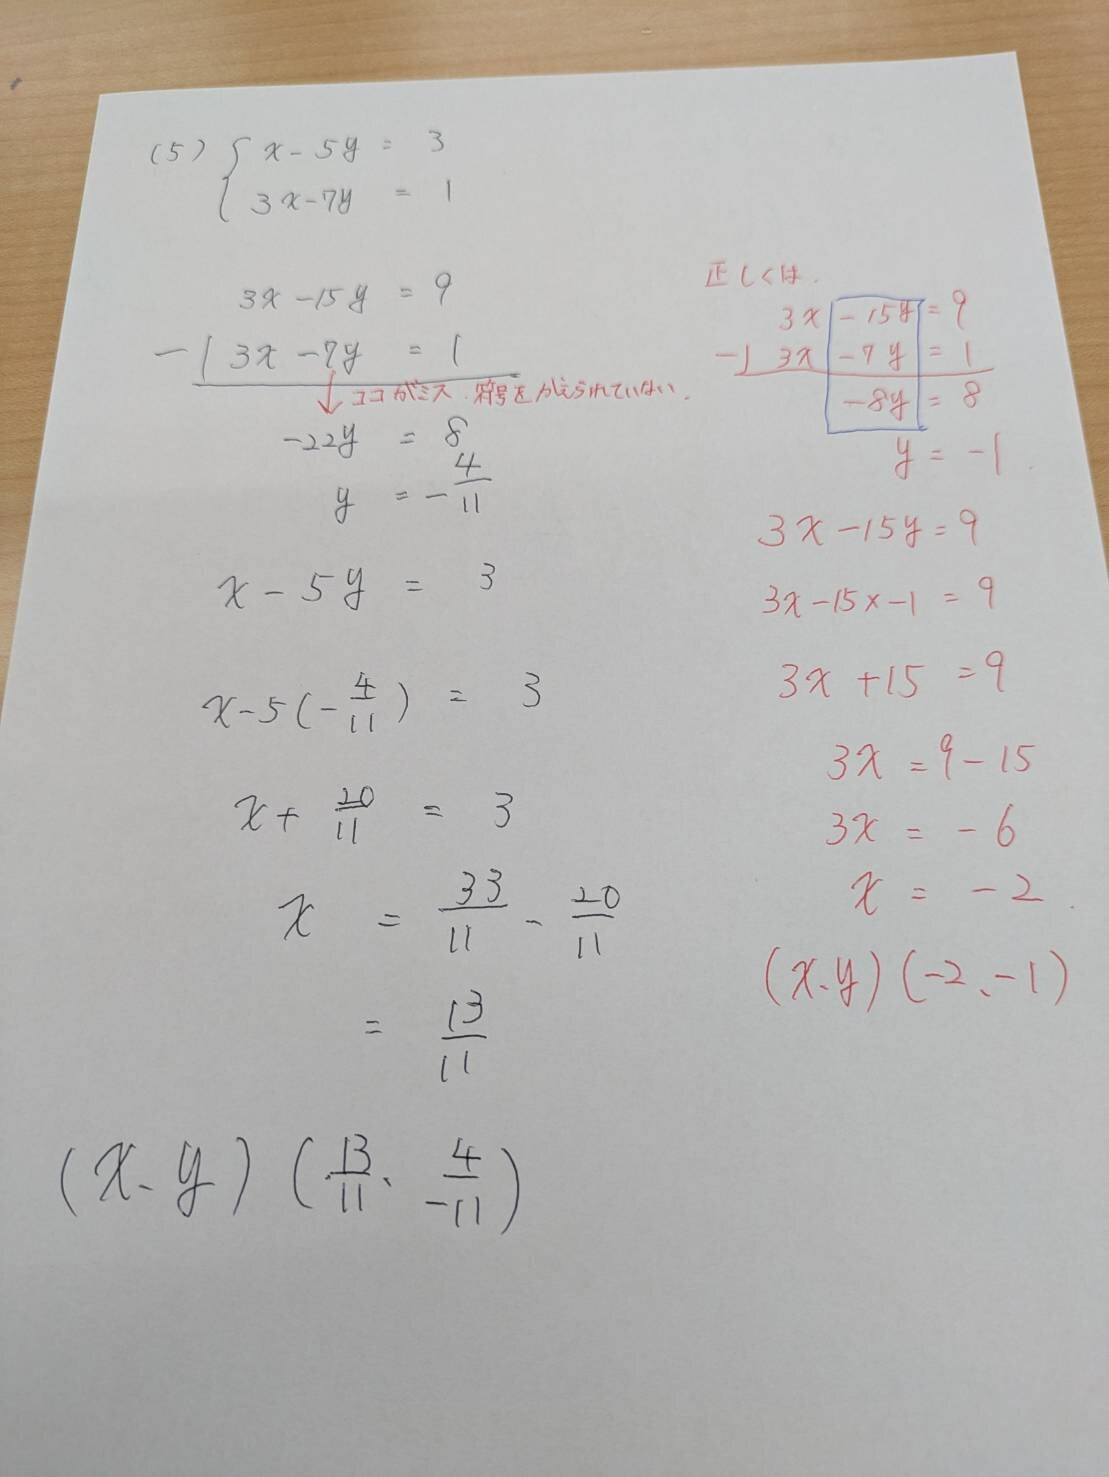 (5) { x - 5y = 3
3x - 7y = 1
3x - 15y = 9
-) 3x - 7y = 1
ココがミス. 符号をかえられていない.
-22y = 8
y = -4/11
x - 5y = 3
x - 5(-4/11) = 3
x + 20/11 = 3
x = 33/11 - 20/11
= 13/11
(x、y) (13/11、4/-11)
正しくは.
3x - 15y = 9
-) 3x - 7y = 1
-8y = 8
y = -1
3x - 15y = 9
3x - 15 × -1 = 9
3x + 15 = 9
3x = 9 - 15
3x = -6
x = -2
(x、y) (-2、-1)